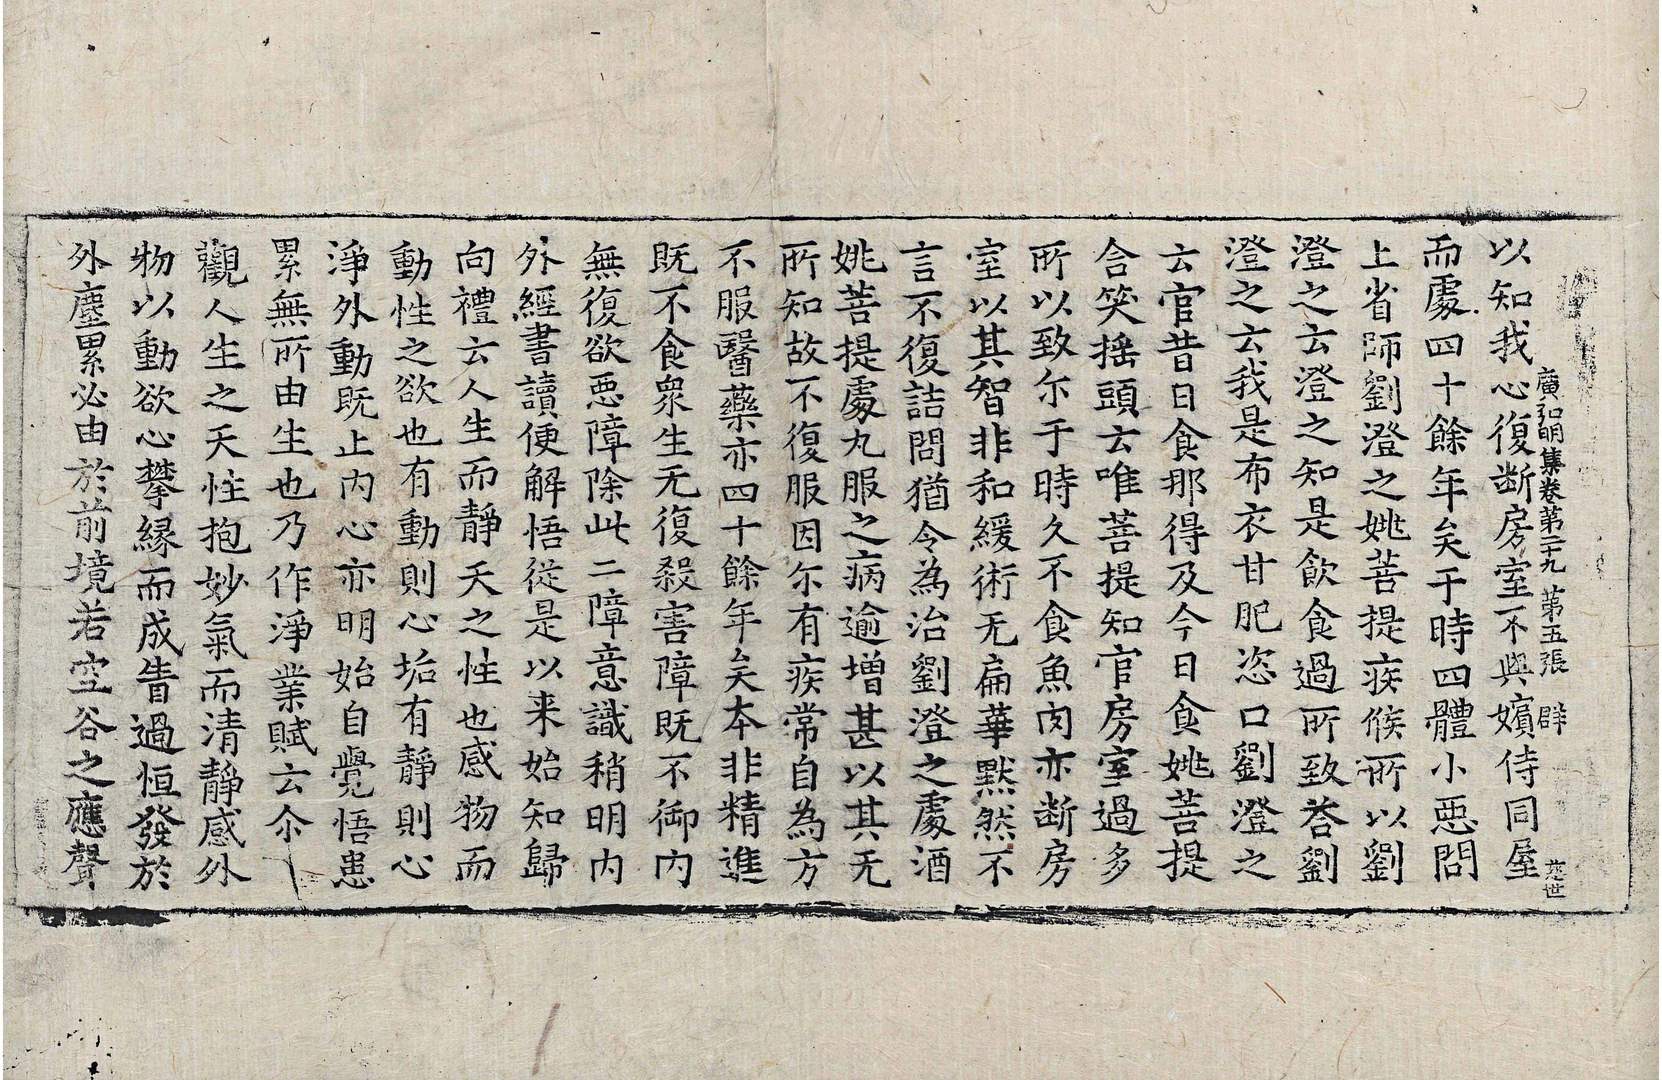 廣弘明集卷第二十九 第五張 辟
以知我心復断房室不與嬪侍同屋
而處四十餘年矣于時四體小惡問
上省師劉澄之姚菩提疾候所以劉
澄之云澄之知是飲食過所致荅劉
澄之云我是布衣甘肥恣口劉澄之
云官昔日食那得及今日食姚菩提
含笑摇頭云唯菩提知官房室過多
所以致尓于時久不食魚肉亦断房
室以其智非和緩術无扁華黙然不
言不復詰問猶令為治劉澄之處酒
姚菩提處丸服之病逾增甚以其无
所知故不復服因尓有疾常自為方
不服醫藥亦四十餘年矣本非精進
既不食衆生无復殺害障既不御內
無復欲惡障除此二障意識稍明內
外經書讀便解悟従是以来始知歸
向禮云人生而靜天之性也感物而
動性之欲也有動則心垢有靜則心
淨外動既止內心亦明始自覺悟患
累無所由生也乃作淨業賦云尒
觀人生之天性抱妙氣而清靜感外
物以動欲心攀緣而成眚過恒發於
外塵累必由於前境若空谷之應聲